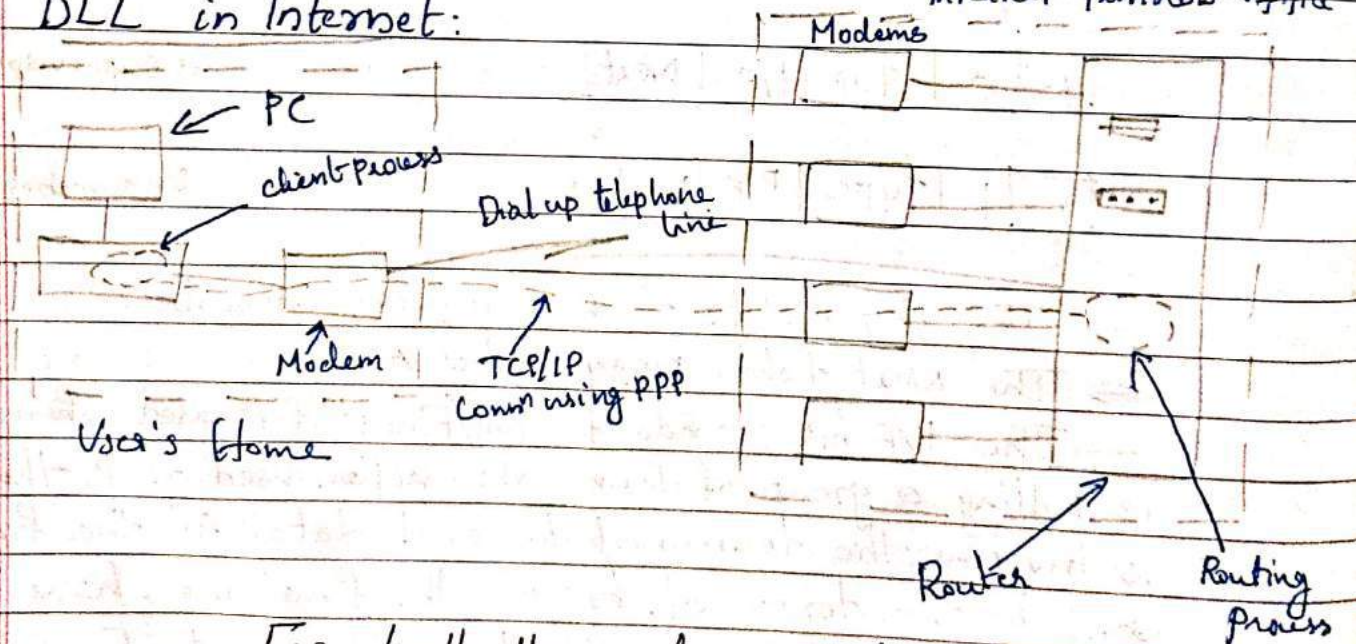 DLL in Internet:
Modems
PC
client process
Dial up telephone
line
Modem
TCP/IP
Commⁿ using PPP
User's Home
Router
Routing
Process